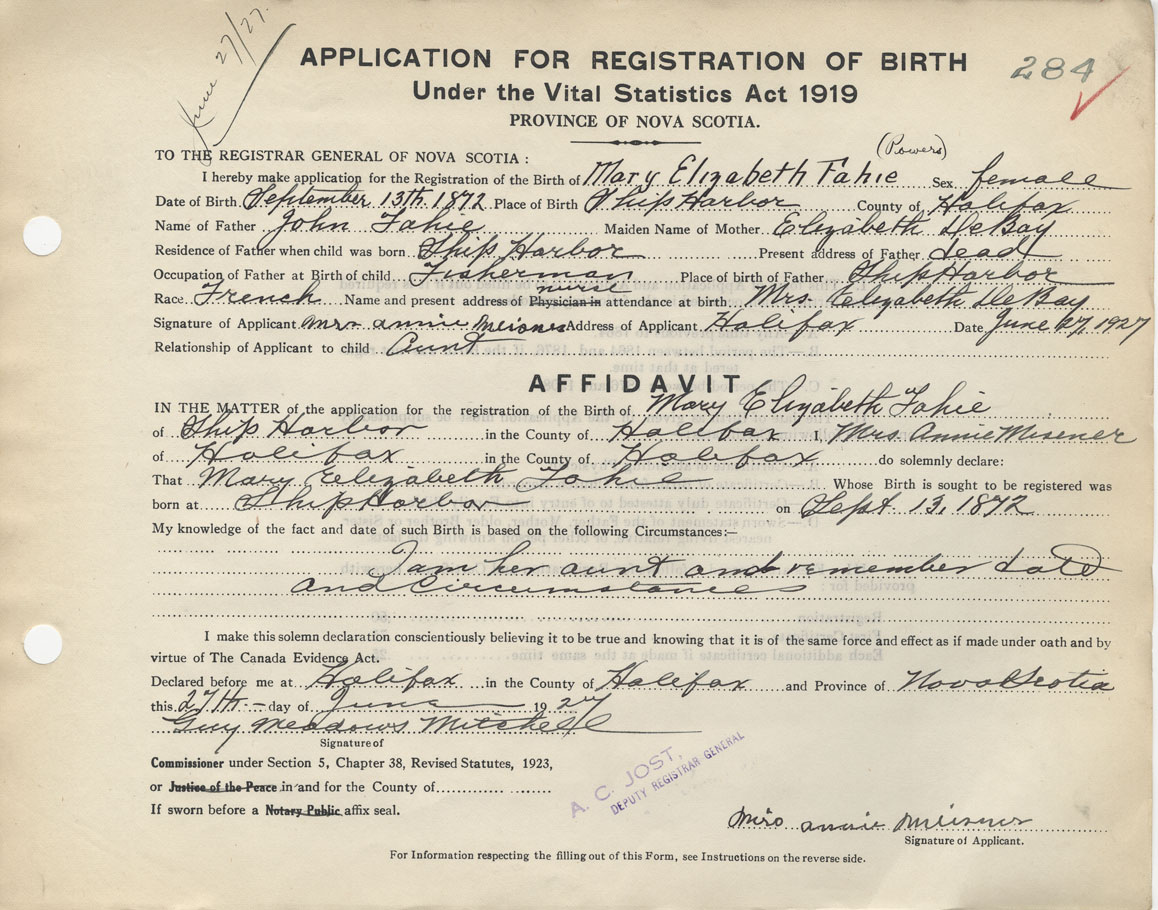 June 27/27.
APPLICATION FOR REGISTRATION OF BIRTH
284
Under the Vital Statistics Act 1919
PROVINCE OF NOVA SCOTIA.
(Powers)
TO THE REGISTRAR GENERAL OF NOVA SCOTIA :
I hereby make application for the Registration of the Birth of Mary Elizabeth Fahie Sex female
Date of Birth September 13th 1872 Place of Birth Ship Harbor County of Halifax
Name of Father John Fahie Maiden Name of Mother Elizabeth DeBay
Residence of Father when child was born Ship Harbor Present address of Father dead
Occupation of Father at Birth of child Fisherman Place of birth of Father Ship Harbor
nurse
Race French Name and present address of Physician in attendance at birth Mrs. Elizabeth DeBay
Signature of Applicant Mrs annie Meisner Address of Applicant Halifax Date June 27, 1927
Relationship of Applicant to child Aunt
AFFIDAVIT
IN THE MATTER of the application for the registration of the Birth of Mary Elizabeth Fahie
of Ship Harbor in the County of Halifax I, Mrs. Annie Misener
of Halifax in the County of Halifax do solemnly declare:
That Mary Eelizabeth Fahie Whose Birth is sought to be registered was
born at Ship Harbor on Sept. 13, 1872
My knowledge of the fact and date of such Birth is based on the following Circumstances:—
I am her aunt and remember date
and circumstances
I make this solemn declaration conscientiously believing it to be true and knowing that it is of the same force and effect as if made under oath and by
virtue of The Canada Evidence Act.
Declared before me at Halifax in the County of Halifax and Province of Nova Scotia
this 27th day of June 1927
Guy Meadows Mitchell
Signature of
Commissioner under Section 5, Chapter 38, Revised Statutes, 1923,
or Justice of the Peace in and for the County of
If sworn before a Notary Public affix seal.
A. C. JOST,
DEPUTY REGISTRAR GENERAL
Mrs annie Meisner
Signature of Applicant.
For Information respecting the filling out of this Form, see Instructions on the reverse side.